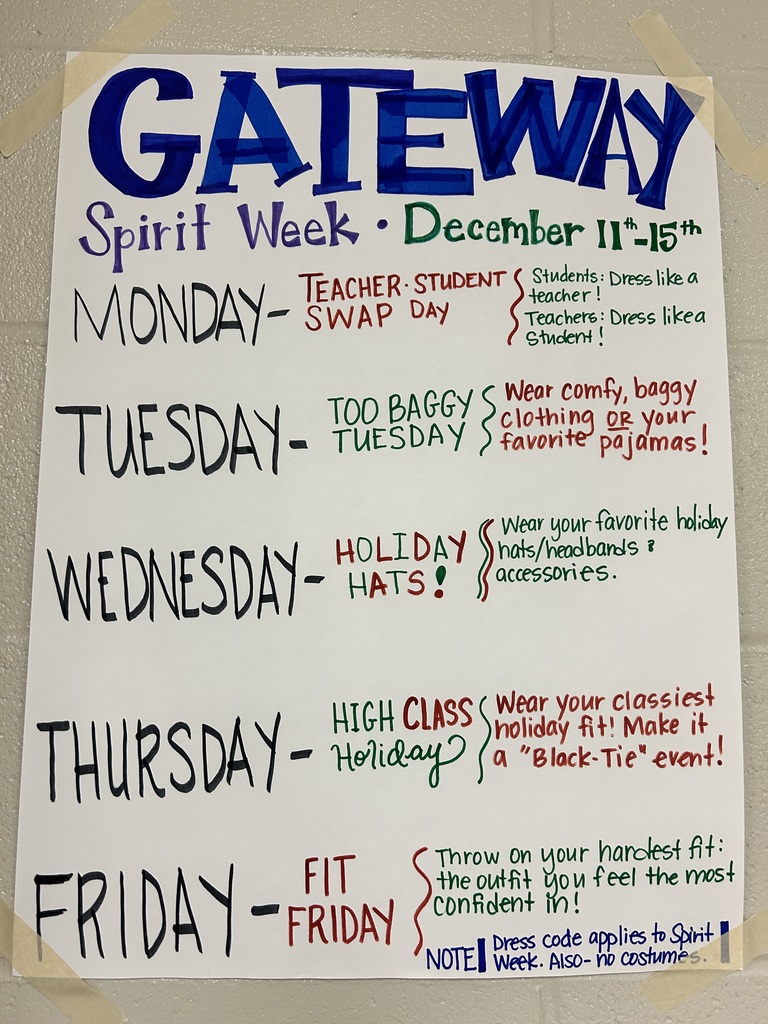 GATEWAY
Spirit Week · December 11th-15th
MONDAY-
TEACHER·STUDENT
SWAP DAY
Students: Dress like a
teacher!
Teachers: Dress like a
Student!
TUESDAY-
TOO BAGGY
TUESDAY
Wear comfy, baggy
clothing OR your
favorite pajamas!
WEDNESDAY-
HOLIDAY
HATS!
Wear your favorite holiday
hats/headbands &
accessories.
THURSDAY-
HIGH CLASS
Holiday
Wear your classiest
holiday fit! Make it
a "Black-Tie" event!
FRIDAY-
FIT
FRIDAY
Throw on your hardest fit:
the outfit you feel the most
confident in!
NOTE
Dress code applies to Spirit
Week. Also- no costumes.